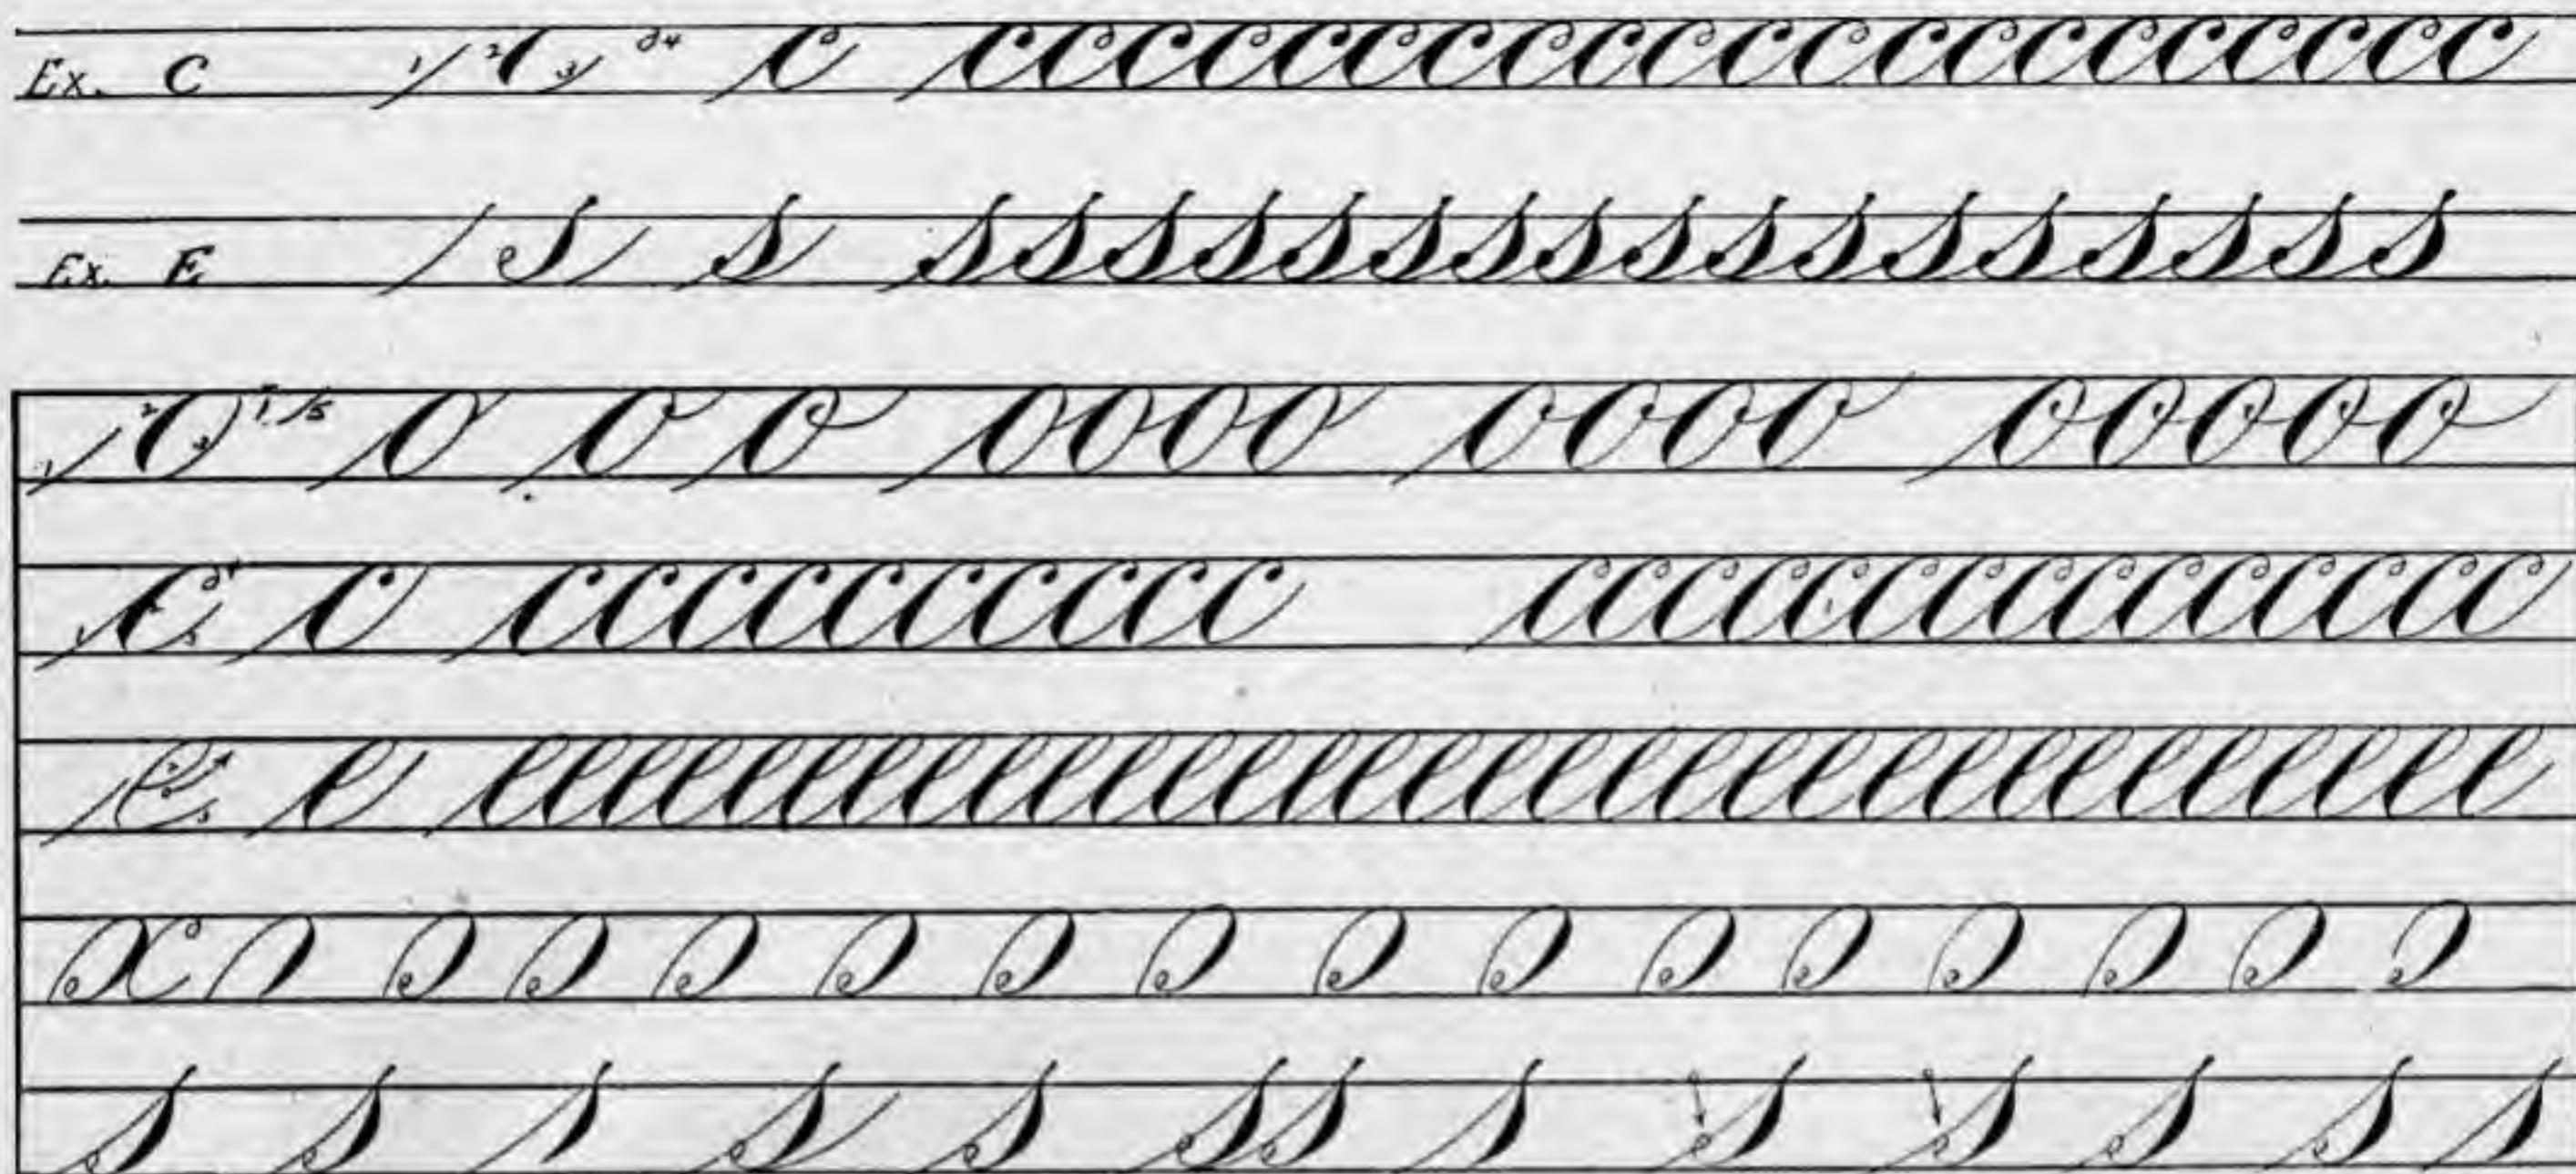 Ex. C 1 2 c 3 4 c ccccccccccccccccccccc
Ex. E s s sssssssssssssssss
1 2 o 3 4 5 o o o oooo oooo ooooo
1 c 2 3 4 c cccccccccc ccccccccccccccc
e e eeeeeeeeeeeeeeeeeeeeeeeeeeeeee
x
s s s s s ss s s s s s s